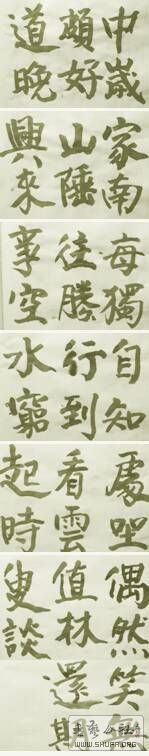 中歲
頗好
道晚
家南
山陲
興來
每獨
往勝
事空
自知
行到
水窮
處坐
看雲
起時
偶然
值林
叟談
笑無
還期
書藝公社
WWW.SHUFA.ORG